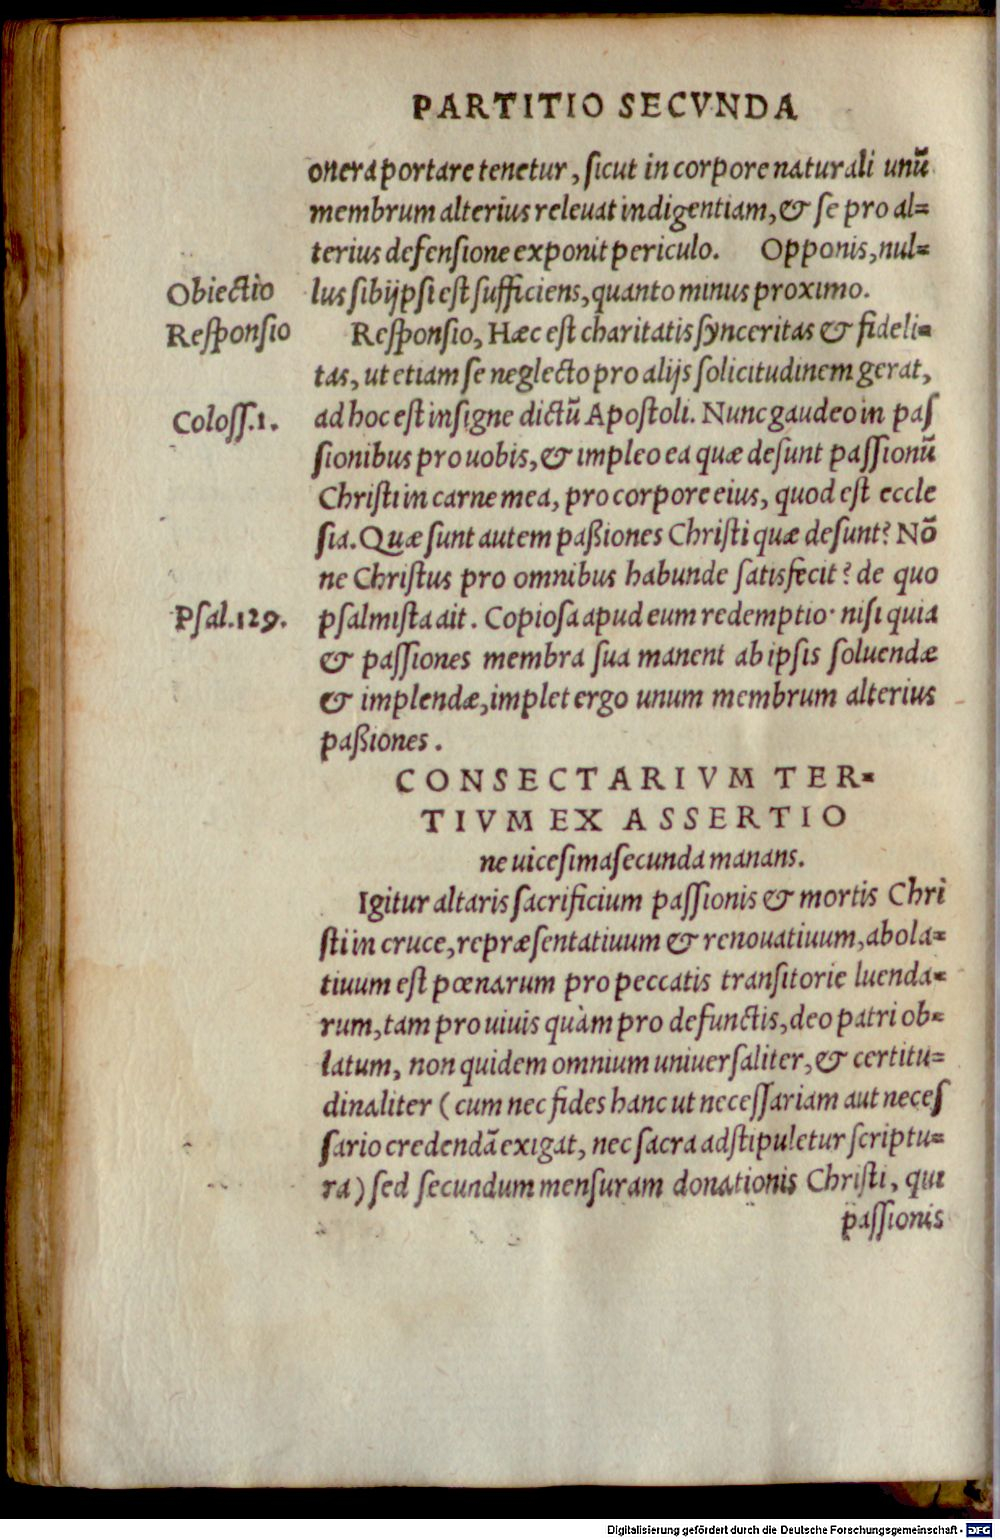 PARTITIO SECVNDA
onera portare tenetur, ſicut in corpore naturali unũ
membrum alterius releuat indigentiam, & ſe pro al=
terius defenſione exponit periculo. Opponis, nul=
Obiectio
lus ſibijpſi eſt ſufficiens, quanto minus proximo.
Reſponſio
Reſponſio, Hæc eſt charitatis ſynceritas & fideli=
tas, ut etiam ſe neglecto pro alijs ſolicitudinem gerat,
Coloſſ.1.
ad hoc eſt inſigne dictũ Apoſtoli. Nunc gaudeo in paſ
ſionibus pro uobis, & impleo ea quæ deſunt paſſionũ
Chriſti in carne mea, pro corpore eius, quod eſt eccle
ſia. Quæ ſunt autem paßiones Chriſti quæ deſunt? Nõ
ne Chriſtus pro omnibus habunde ſatisfecit? de quo
Pſal.129.
pſalmiſta ait. Copioſa apud eum redemptio· niſi quia
& paſſiones membra ſua manent ab ipſis ſoluendæ
& implendæ, implet ergo unum membrum alterius
paßiones.
CONSECTARIVM TER=
TIVM EX ASSERTIO
ne uiceſimaſecunda manans.
Igitur altaris ſacrificium paſſionis & mortis Chri
ſti in cruce, repræſentatiuum & renouatiuum, abola=
tiuum eſt pœnarum pro peccatis tranſitorie luenda=
rum, tam pro uiuis quàm pro defunctis, deo patri ob=
latum, non quidem omnium uniuerſaliter, & certitu=
dinaliter (cum nec fides hanc ut neceſſariam aut neceſ
ſario credendã exigat, nec ſacra adſtipuletur ſcriptu=
ra) ſed ſecundum menſuram donationis Chriſti, qui
paſſionis
Digitalisierung gefördert durch die Deutsche Forschungsgemeinschaft - DFG